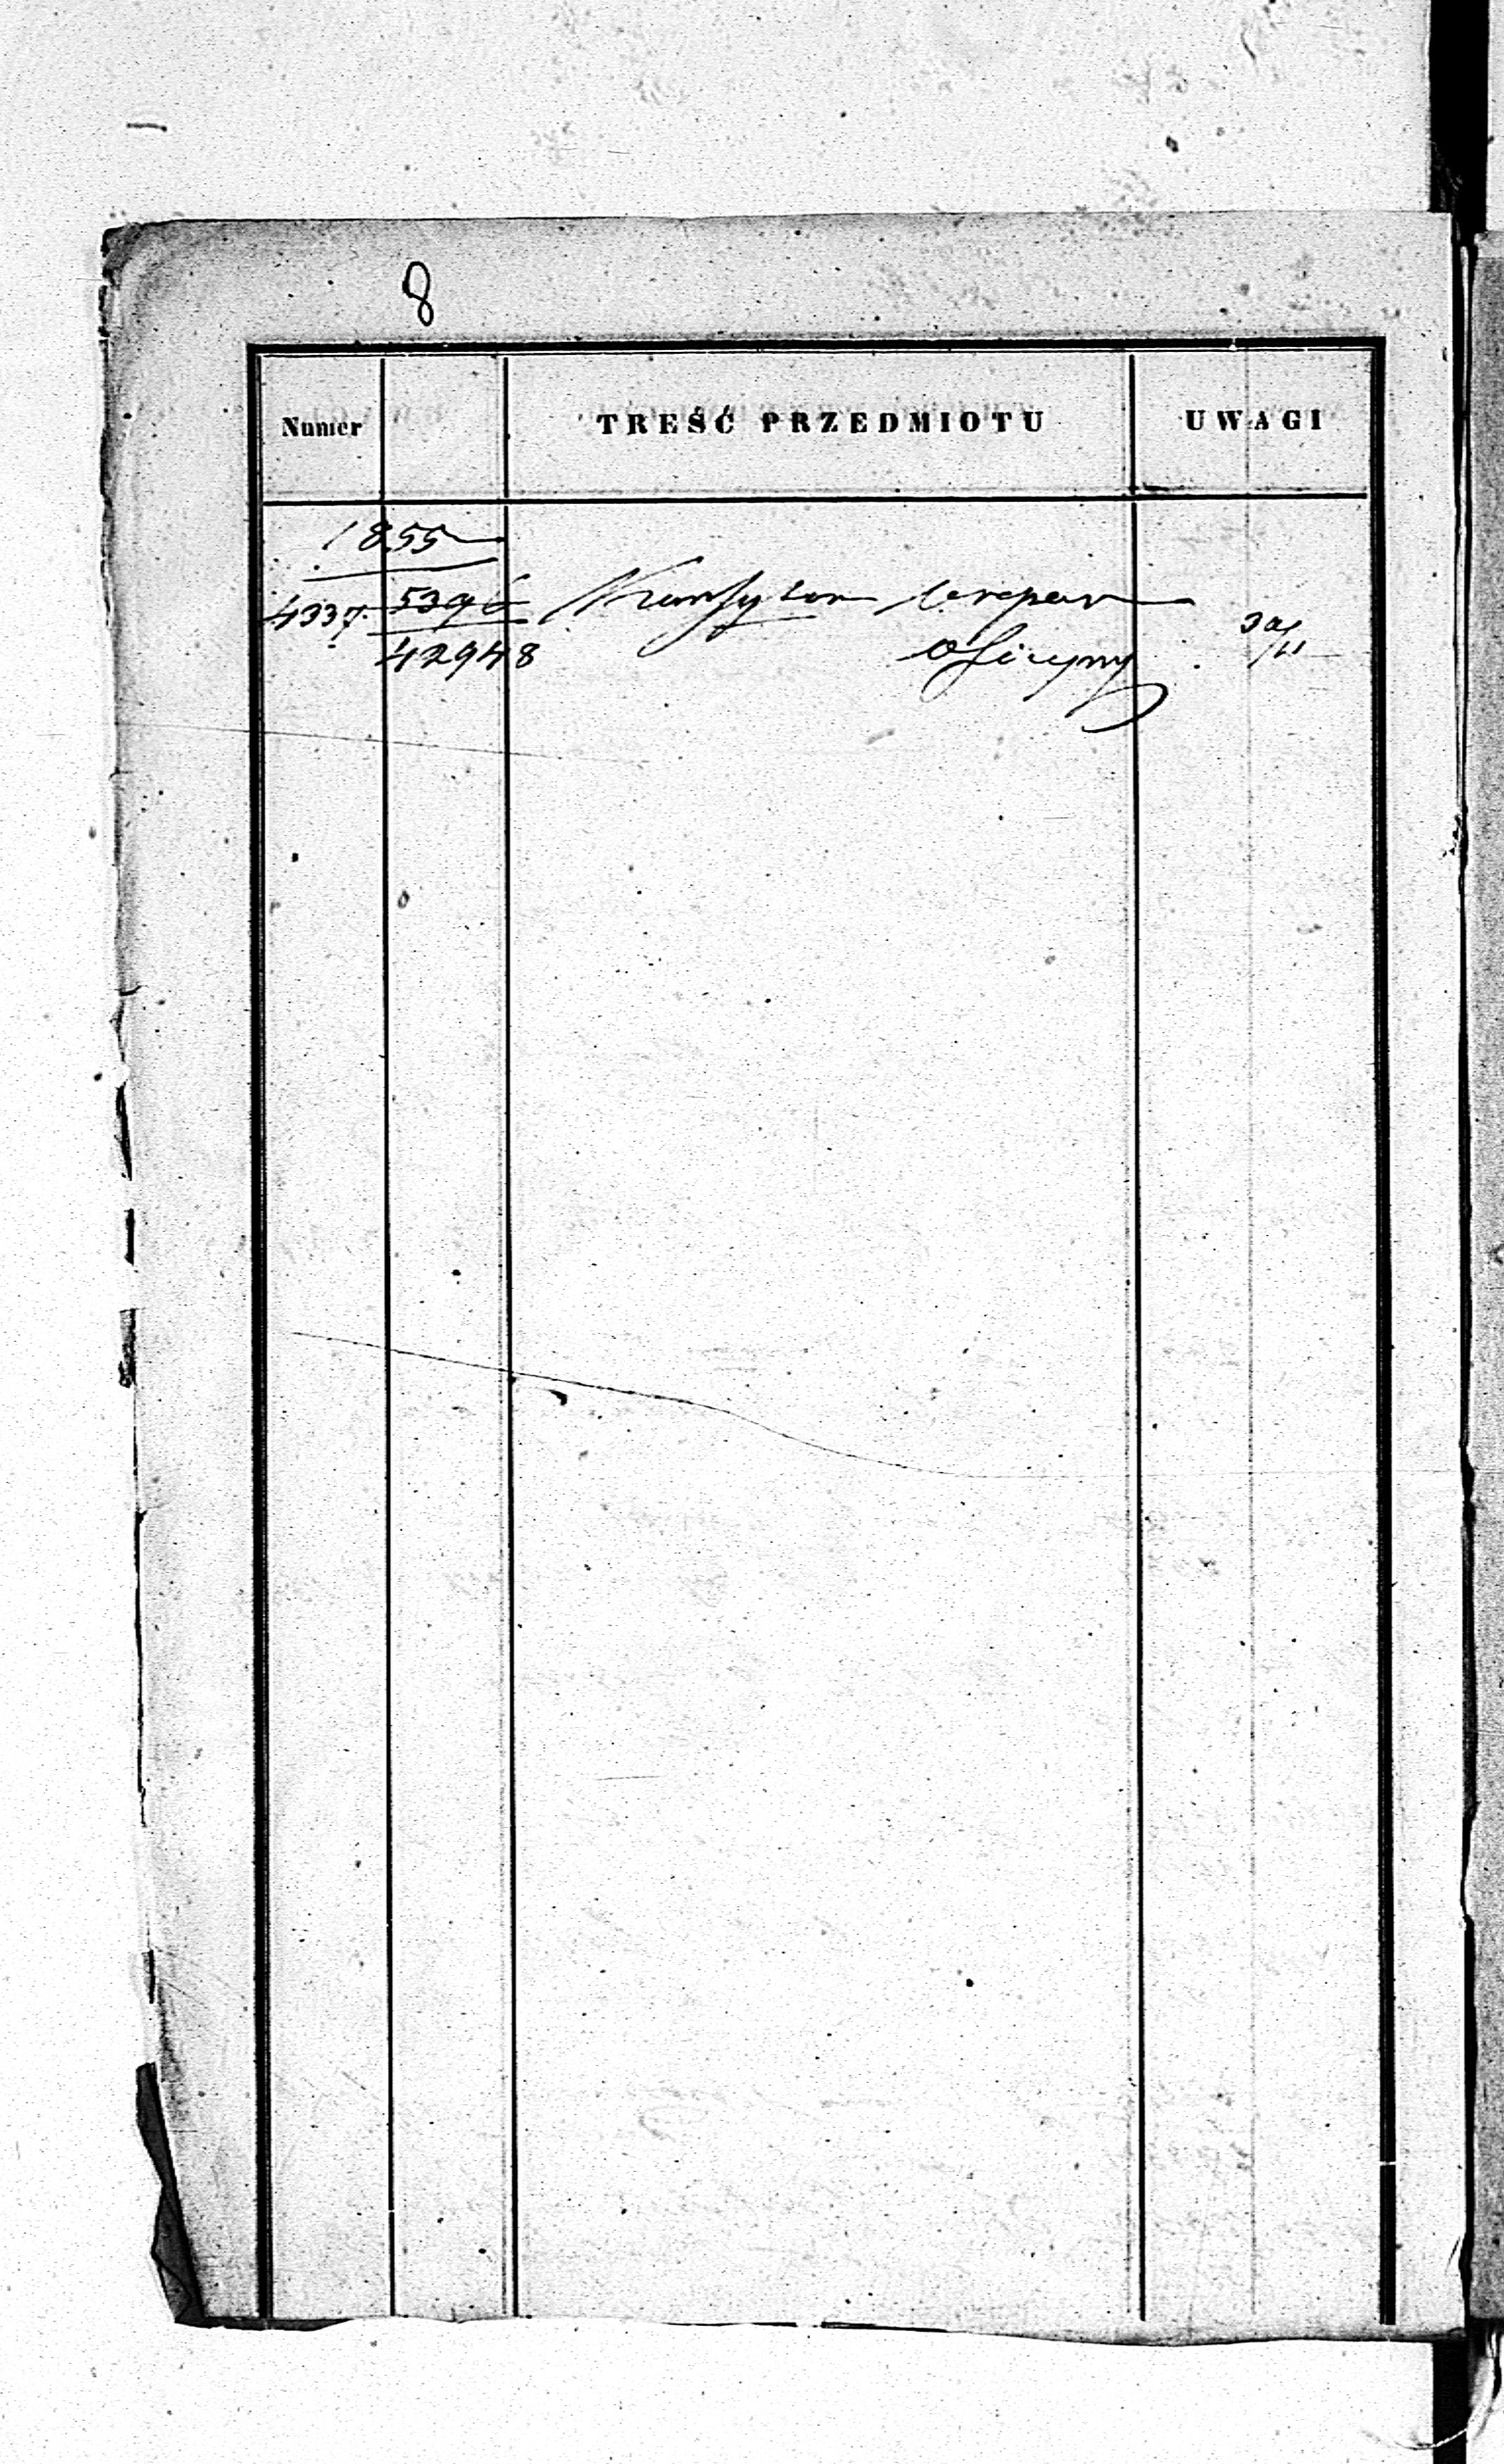 8
Numer TREŚĆ PRZEDMIOTU UWAGI
1855
4337 5396
42948 Oficyny 30/11